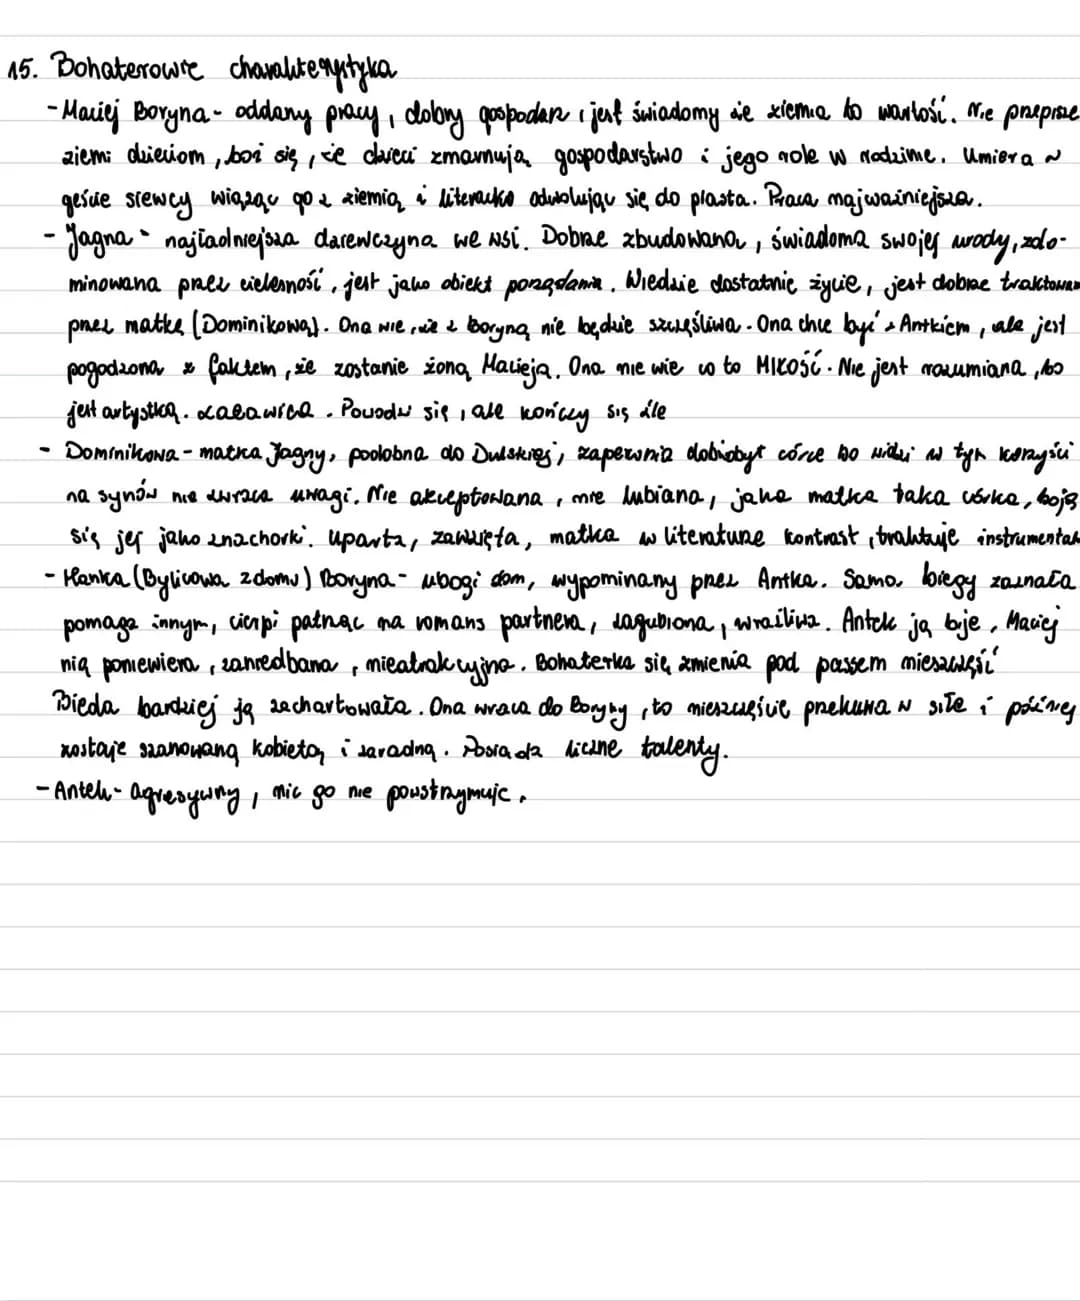 15. Bohaterowie charakterystyka
- Maciej Boryna - oddany pracy, dobry gospodarz, jest świadomy że ziemia to wartość. Nie przepisze
ziemi dzieciom, boi się, że dzieci zmarnują gospodarstwo i jego role w rodzinie. Umiera w
geście siewcy wiążąc go z ziemią i literacko odwołując się do piasta. Praca najważniejsza.
- Jagna - najładniejsza dziewczyna we wsi. Dobrze zbudowana, świadoma swojej urody, zdo-
minowana przez cielesność, jest jako obiekt porządania. Wiedzie dostatnie życie, jest dobrze traktowana
przez matkę (Dominikową). Ona wie, że z Boryną nie będzie szczęśliwa. Ona chce być z Antkiem, ale jest
pogodzona z faktem, że zostanie żoną Macieja. Ona nie wie co to MIŁOŚĆ. Nie jest rozumiana, bo
jest artystką. Powodu się, ale kończy się źle
- Dominikowa - matka Jagny, podobna do Dulskiej, zapewnia dobrobyt córce bo widzi w tym korzyści
na synów nie zwraca uwagi. Nie akceptowana, nie lubiana, jaka matka taka córka, boją
się jej jako znachorki. Uparta, zawzięta, matka w literaturze kontrast, traktuje instrumental
- Hanka (Bylicowa z domu) Boryna - ubogi dom, wypominany przez Antka. Sama biegy zaznała
pomaga innym, cierpi patrząc na romans partnera, zagubiona, wrażliwa. Antek ją bije, Maciej
nią poniewiera, zaniedbana, nieatrakcyjna. Bohaterka się zmienia pod pasem nieszczęść
Bieda bardziej ją zachartowała. Ona wraca do Boryny, to nieszczęście przekuwa w siłe i później
zostaje szanowaną kobietą i zaradną. Posiada liczne talenty.
- Antek - agresywny, nic go nie powstrzymuje.